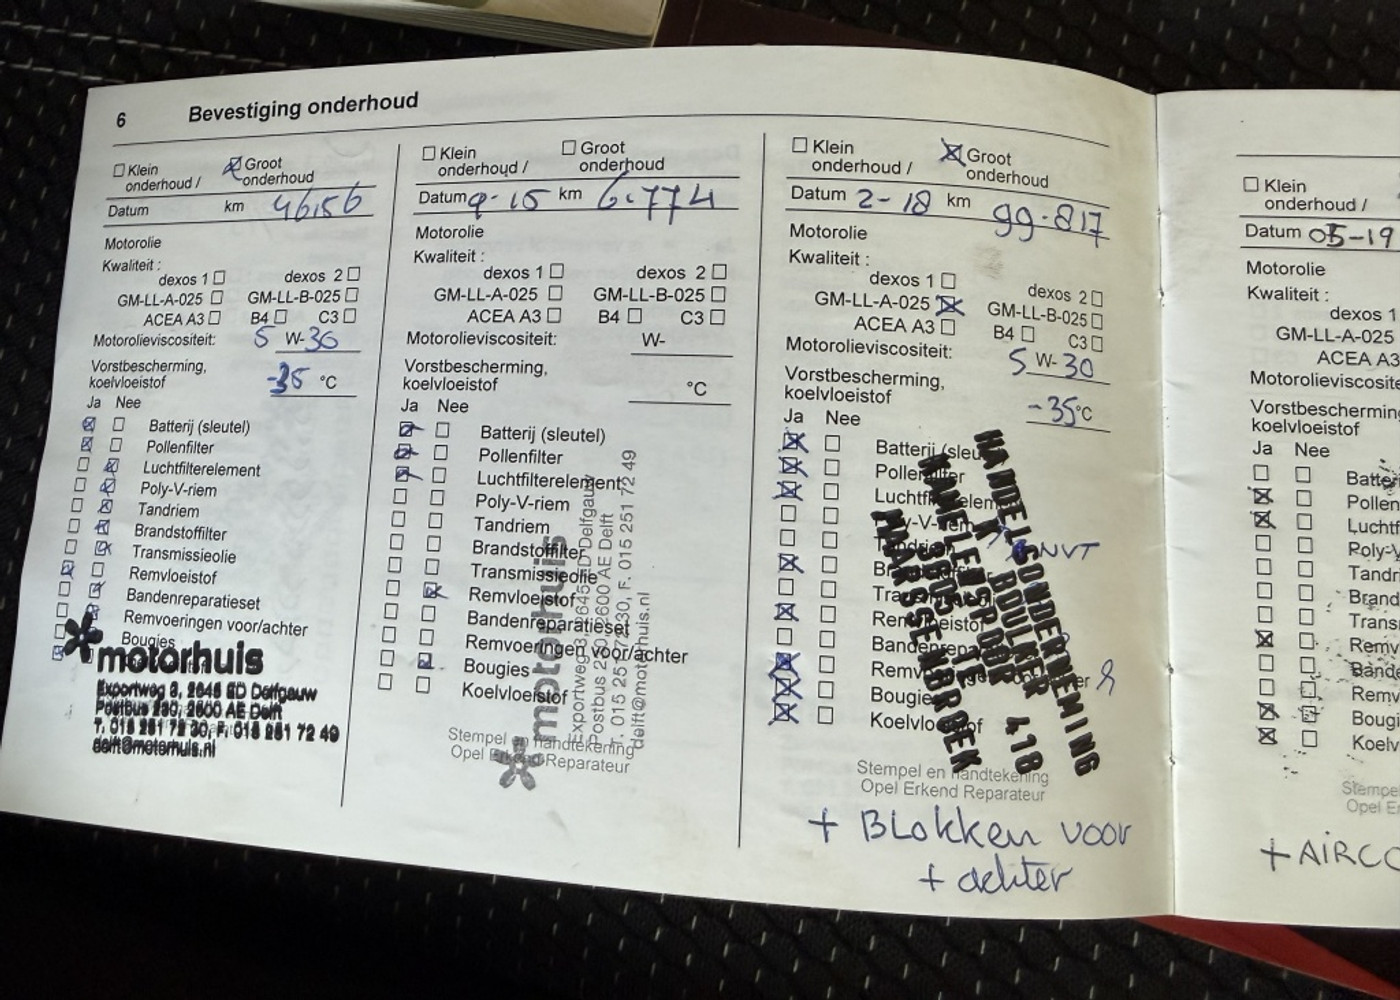 6 Bevestiging onderhoud
☐ Klein onderhoud / ☒ Groot onderhoud
Datum km 46.156
Motorolie
Kwaliteit :
dexos 1 ☐ dexos 2 ☐
GM-LL-A-025 ☐ GM-LL-B-025 ☐
ACEA A3 ☐ B4 ☐ C3 ☐
Motorolieviscositeit: 5 W- 30
Vorstbescherming,
koelvloeistof -35 °C
Ja Nee
☒ ☐ Batterij (sleutel)
☒ ☐ Pollenfilter
☐ ☒ Luchtfilterelement
☐ ☒ Poly-V-riem
☐ ☒ Tandriem
☐ ☒ Brandstoffilter
☐ ☒ Transmissieolie
☒ ☐ Remvloeistof
☐ ☒ Bandenreparatieset
☐ ☒ Remvoeringen voor/achter
Bougies
motorhuis
Exportweg 3, 2645 ED Delfgauw
Postbus 230, 2600 AE Delft
T. 015 251 72 30, F. 015 251 72 49
delft@motorhuis.nl
☐ Klein onderhoud / ☐ Groot onderhoud
Datum 9-15 km 6.774
Motorolie
Kwaliteit :
dexos 1 ☐ dexos 2 ☐
GM-LL-A-025 ☐ GM-LL-B-025 ☐
ACEA A3 ☐ B4 ☐ C3 ☐
Motorolieviscositeit: W-
Vorstbescherming,
koelvloeistof °C
Ja Nee
☒ ☐ Batterij (sleutel)
☒ ☐ Pollenfilter
☒ ☐ Luchtfilterelement
☐ ☐ Poly-V-riem
☐ ☐ Tandriem
☐ ☐ Brandstoffilter
☐ ☐ Transmissieolie
☐ ☒ Remvloeistof
☐ ☐ Bandenreparatieset
☐ ☐ Remvoeringen voor/achter
☐ ☒ Bougies
☐ ☐ Koelvloeistof
Stempel en handtekening
Opel Erkend Reparateur
motorhuis
Exportweg 3, 2645 ED Delfgauw
Postbus 230, 2600 AE Delft
T. 015 251 72 30, F. 015 251 72 49
delft@motorhuis.nl
☐ Klein onderhoud / ☒ Groot onderhoud
Datum 2-18 km 99.817
Motorolie
Kwaliteit :
dexos 1 ☐ dexos 2 ☐
GM-LL-A-025 ☒ GM-LL-B-025 ☐
ACEA A3 ☐ B4 ☐ C3 ☐
Motorolieviscositeit: 5 W- 30
Vorstbescherming,
koelvloeistof -35°C
Ja Nee
☒ ☐ Batterij (sleu
☒ ☐ Pollenfilter
☒ ☐ Luchtfilterelem
☐ ☐ y-V-riem
☐ ☐ Tandriem NVT
☒ ☐ Br
☐ ☐ Tra
☒ ☐ Remvloeistof
☐ ☐ Bandenrepa
☒ ☐ Remv er
☒ ☐ Bougie
☒ ☐ Koelvloeistof
HANDELSONDERNEMING
K BOULKER
KAMELENSPOOR 418
3605 TE
MAARSSENBROEK
Stempel en handtekening
Opel Erkend Reparateur
+ BLokken voor
+ achter
☐ Klein
onderhoud /
Datum 05-19
Motorolie
Kwaliteit :
dexos 1
GM-LL-A-025
ACEA A3
Motorolieviscosite
Vorstbescherming
koelvloeistof
Ja Nee
☐ ☐ Batte
☒ ☐ Pollen
☒ ☐ Lucht
☐ ☐ Poly-V
☐ ☐ Tandr
☐ ☐ Brand
☐ ☐ Trans
☒ ☐ Remv
☐ ☐ Bande
☐ ☐ Remv
☒ ☐ Bougi
☒ ☐ Koelv
Stempe
Opel E
+ AIRCO